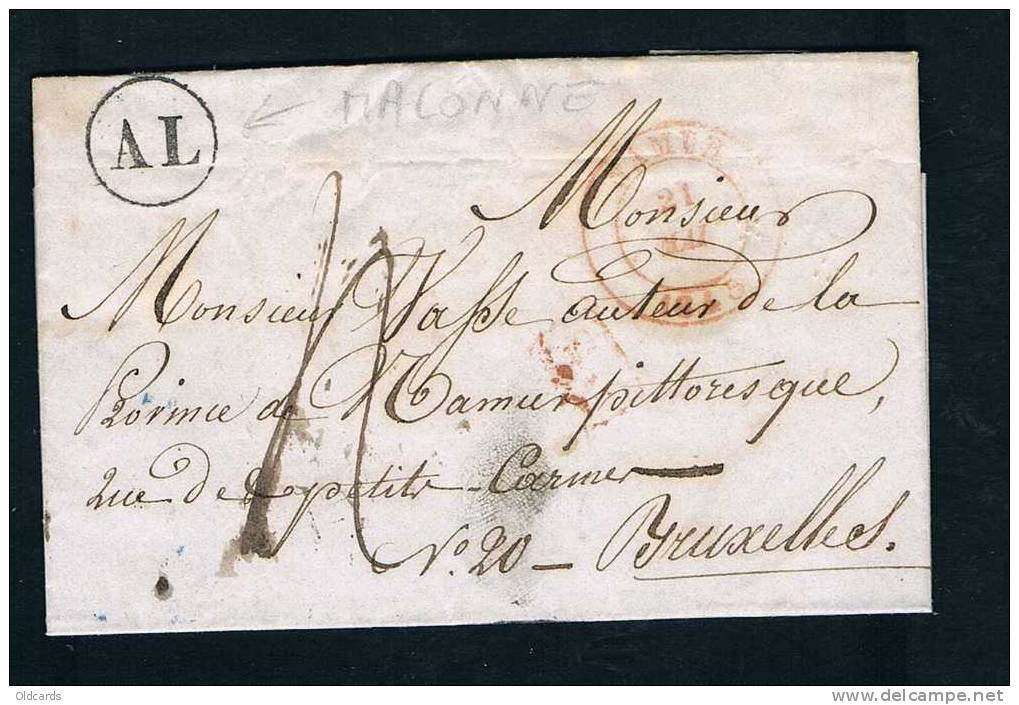 AL
← MALONNE
NAMUR
21
Monsieur
Monsieur Wasse auteur de la
Province de Namur pittoresque,
rue des petits Carmes
No. 20 – Bruxelles.
Oldcards
www.delcampe.net